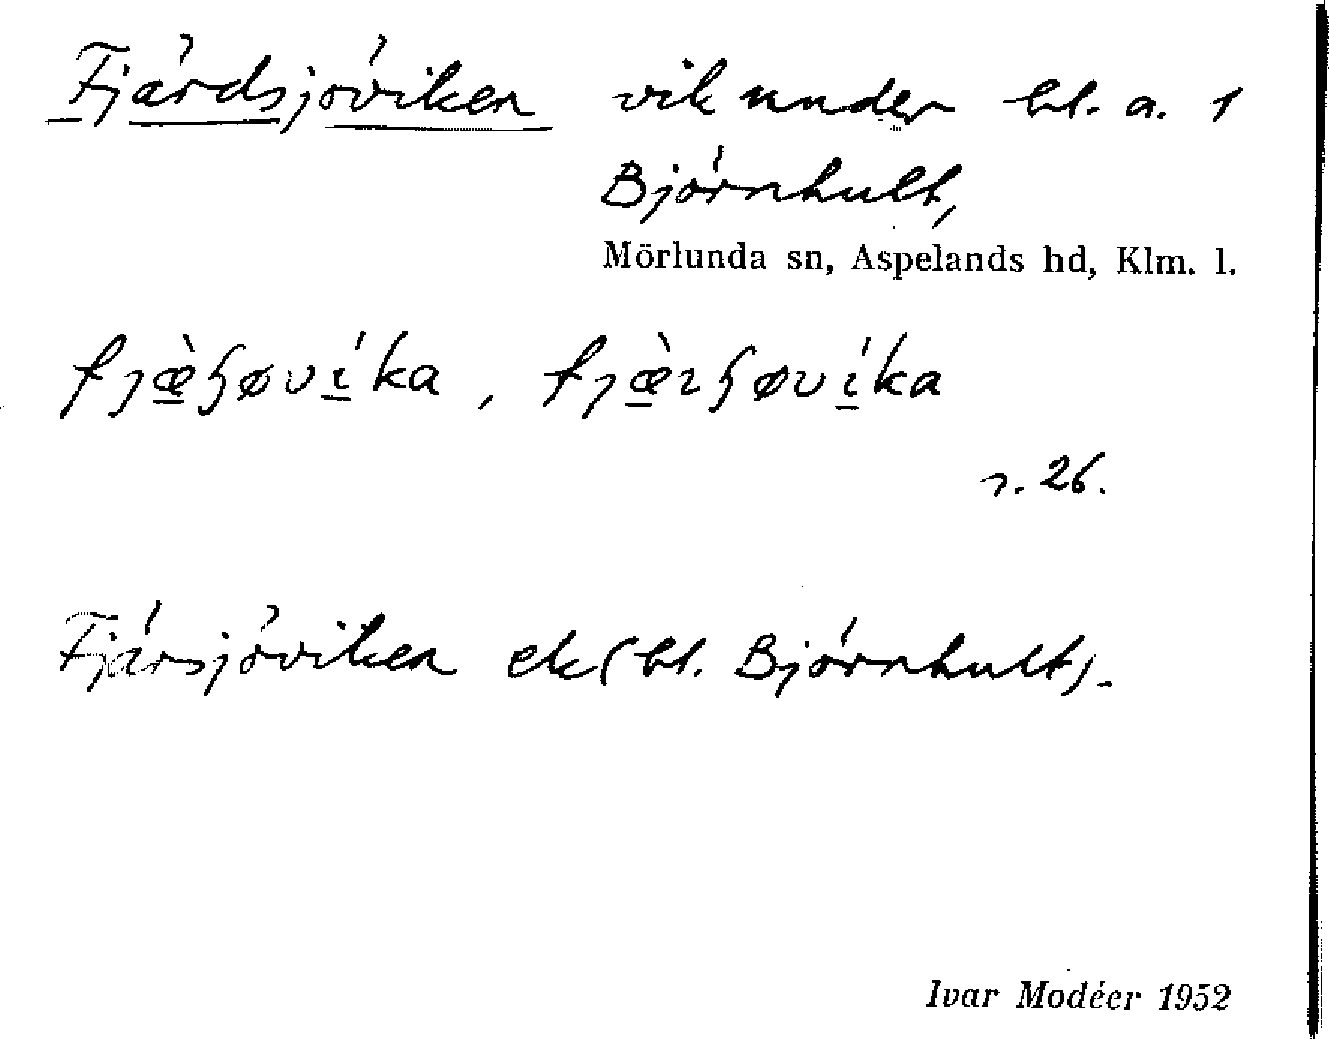 Fjärdsjöviken vik under bl. a. 1
Björnhult,
Mörlunda sn, Aspelands hd, Klm. l.
fjæ̀ɧøvíka, fjæ̀rɧøvíka
s. 26.
Fjärsjöviken ek (bl. Björnhult).
Ivar Modéer 1952